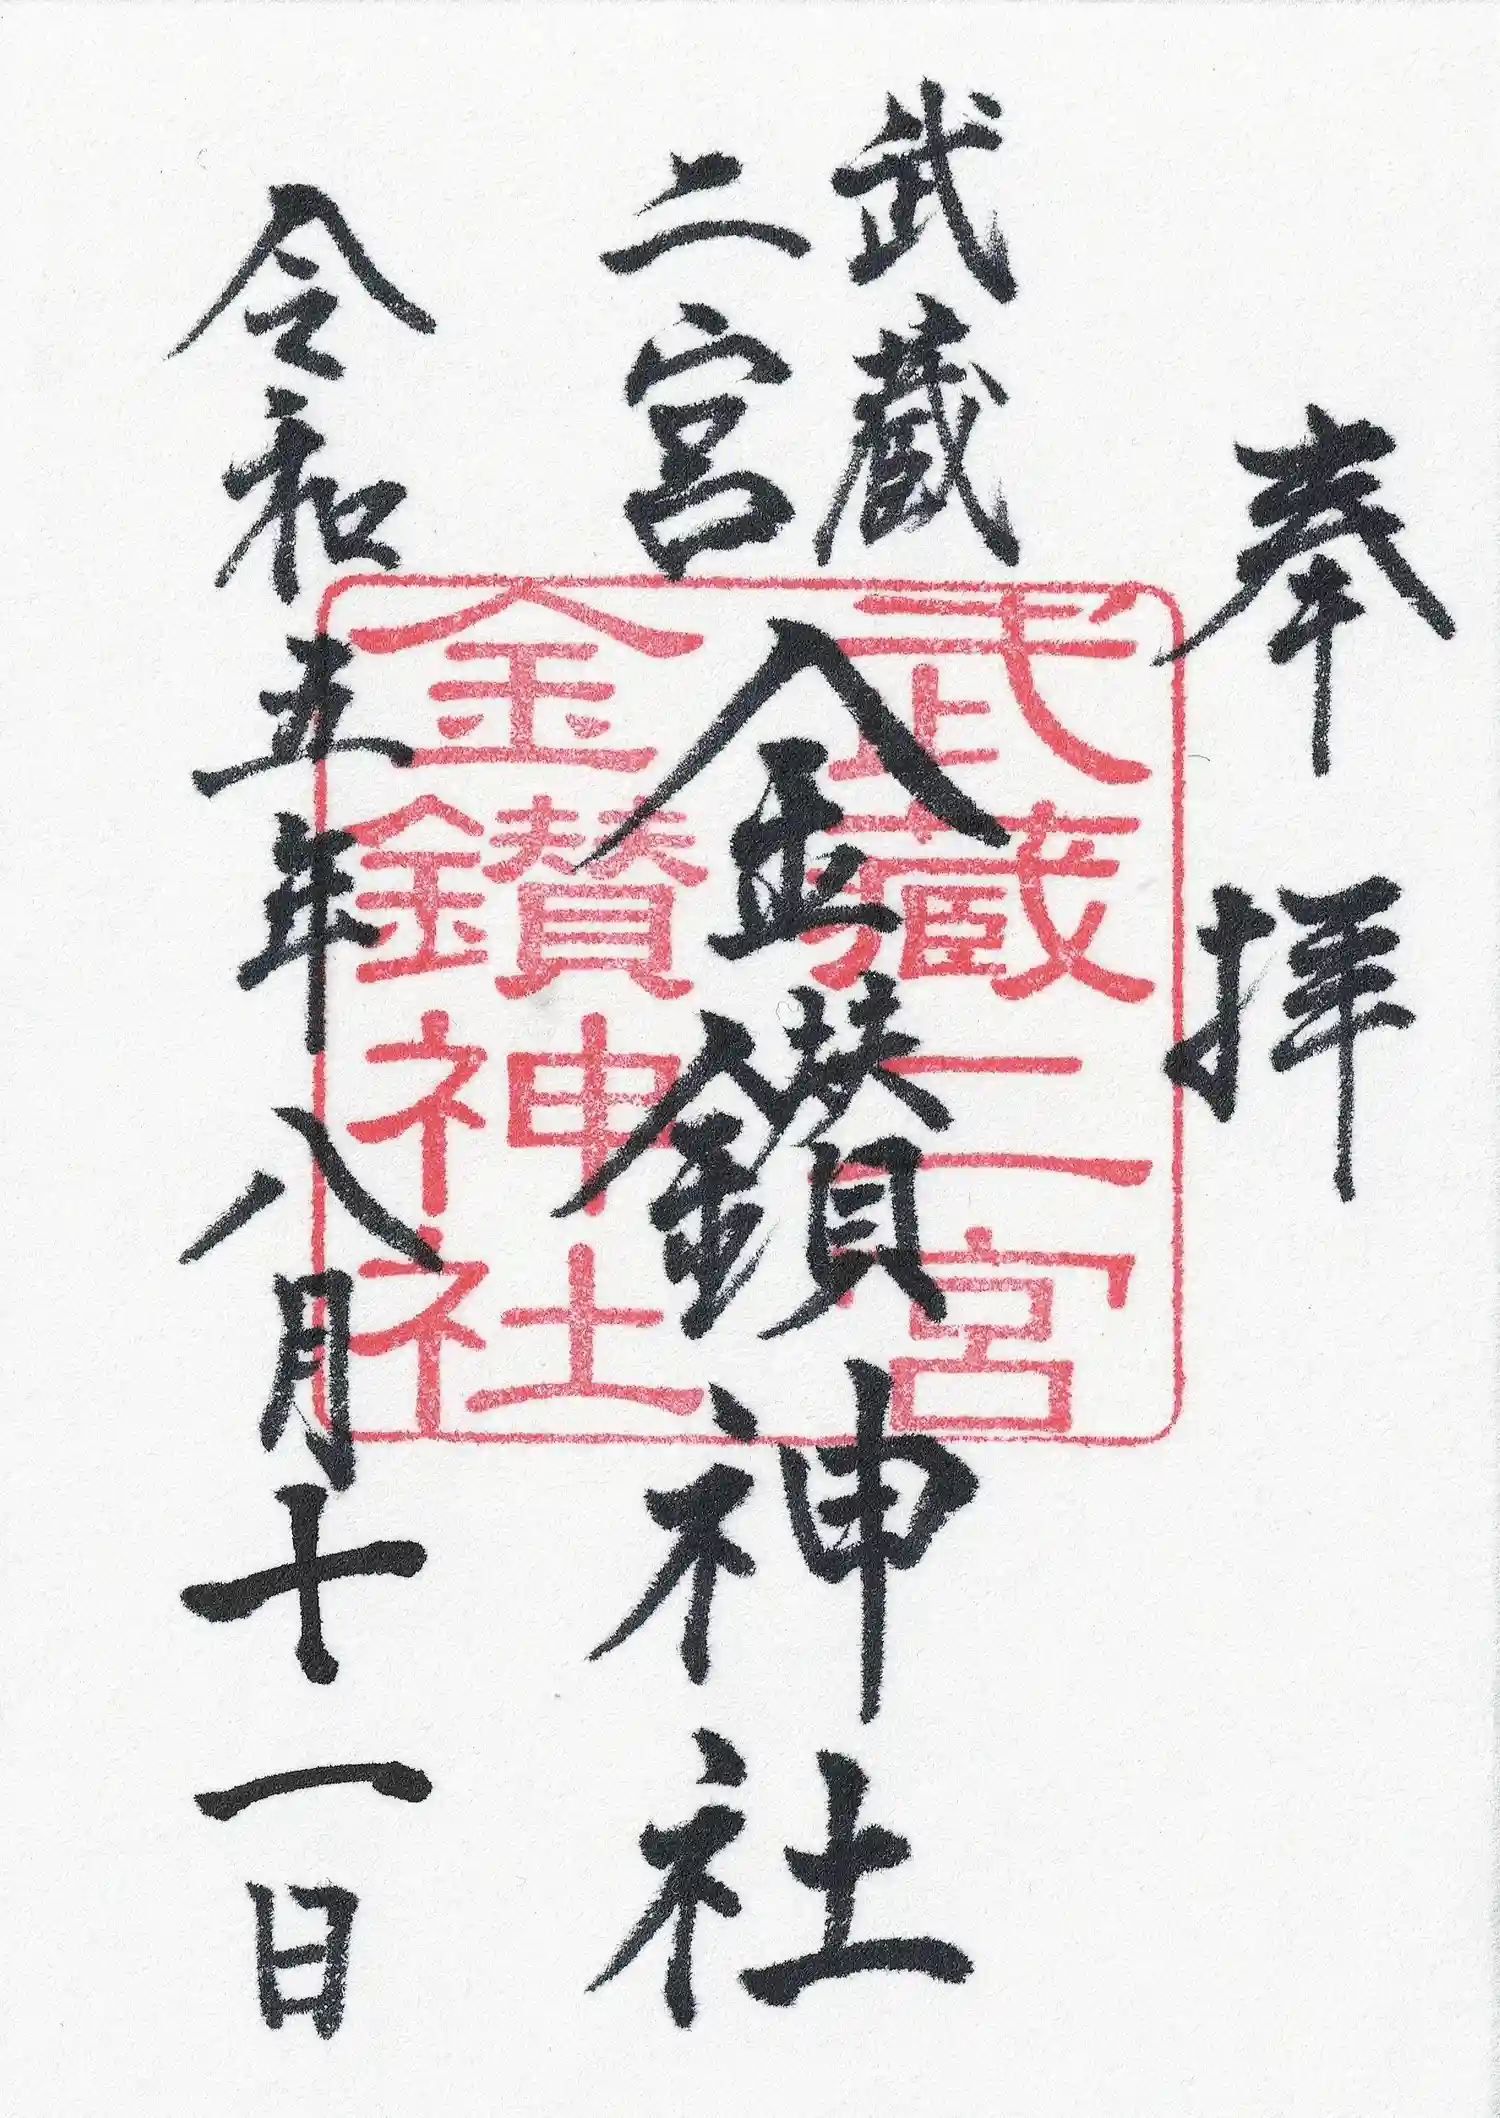 奉拝
武蔵
二宮
金鑚神社
令和五年八月十一日
武蔵二宮
金鑚神社